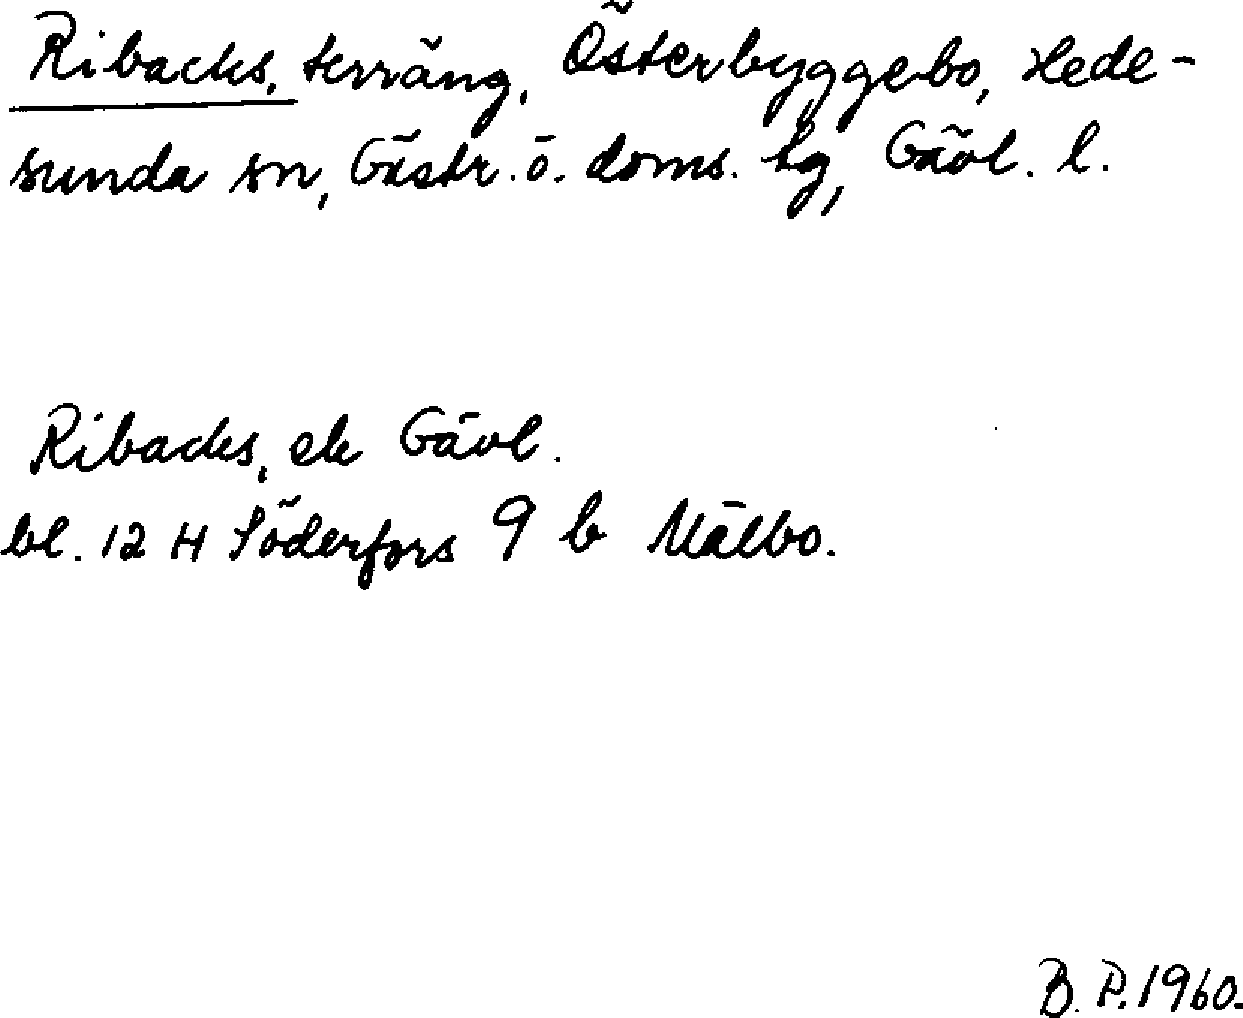 Ribacks, terräng, Österbyggebo, Hede-
sunda sn, Gästr. ö. doms. tg, Gävl. l.
Ribacks, ek Gävl.
bl. 12 H Söderfors 9 b Mälbo.
B. P. 1960.